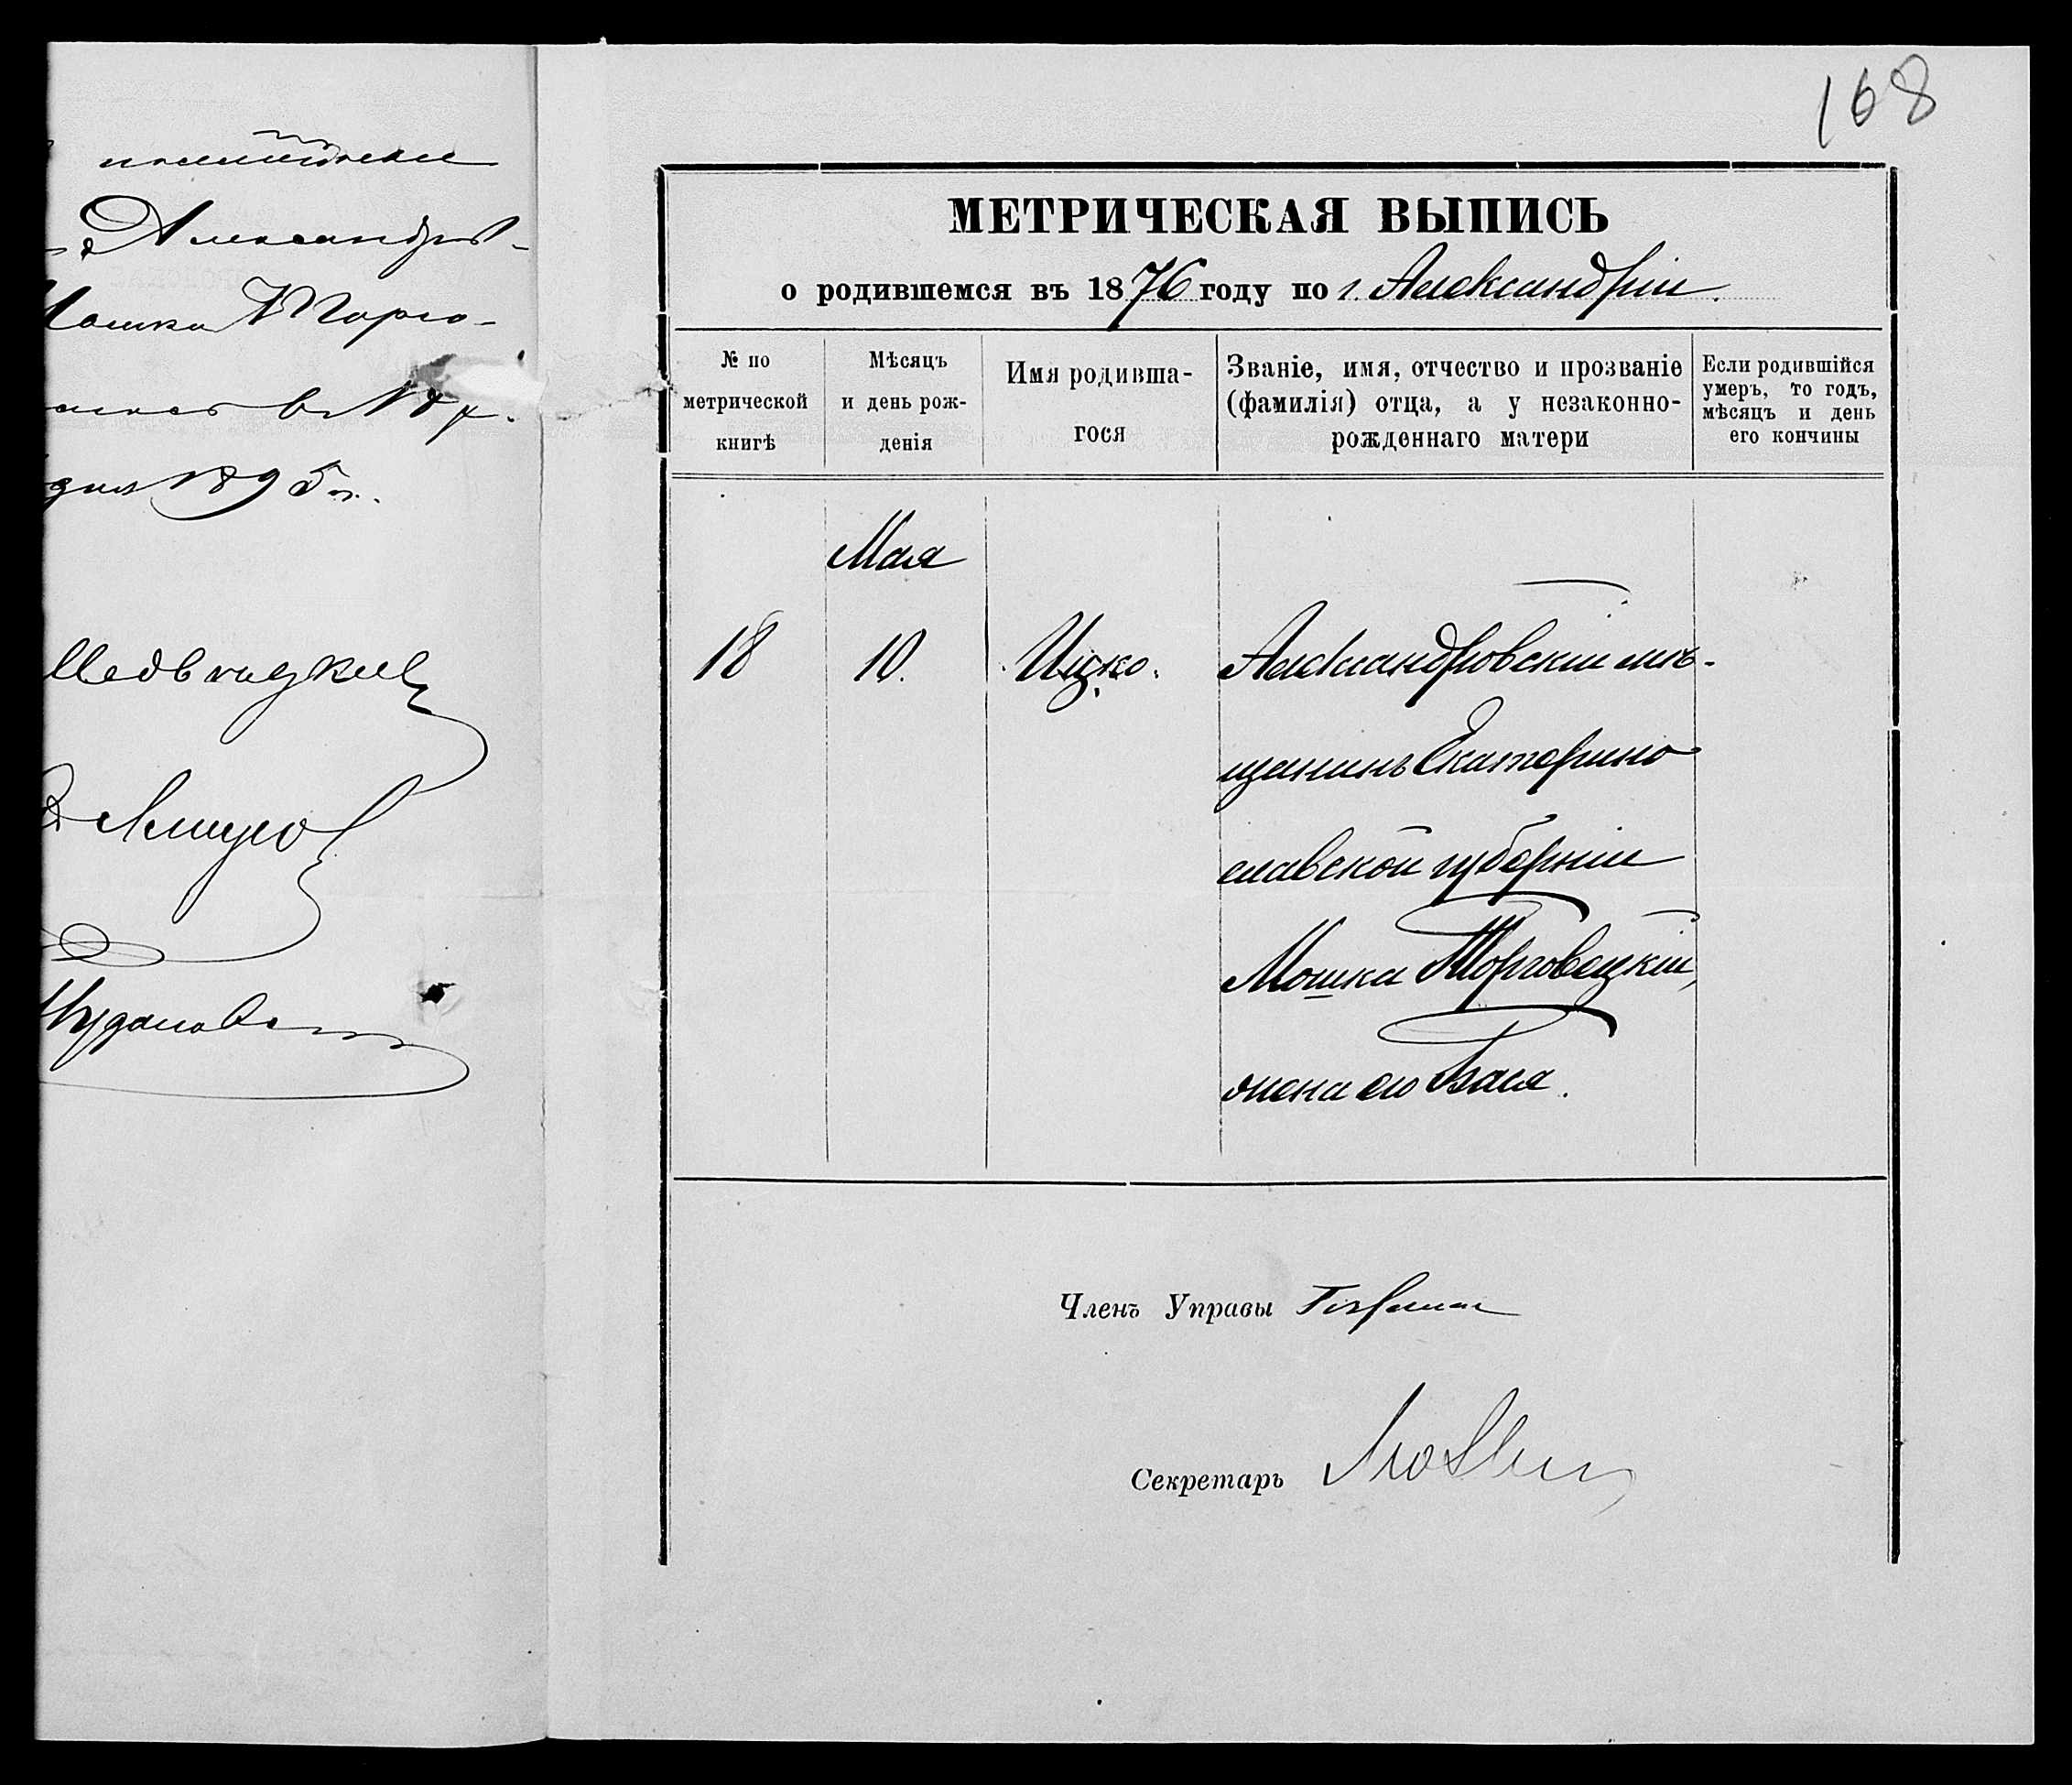 168
Александр-
Мошка Торго-
дня 1895 г.
МЕТРИЧЕСКАЯ ВЫПИСЬ
о родившемся въ 1876 году по г. Александріи.
№ по метрической книгѣ
Мѣсяцъ и день рож-
денія
Имя родивша-
гося
Званіе, имя, отчество и прозваніе
(фамилія) отца, а у незаконно-
рожденнаго матери
Если родившійся
умеръ, то годъ,
мѣсяцъ и день
его кончины
Мая
18 10. Ицко. Александровскій мѣ-
щанинъ Екатерино
славской губерніи
Мошка Торговецкій,
жена его Бася.
Членъ Управы
Секретарь